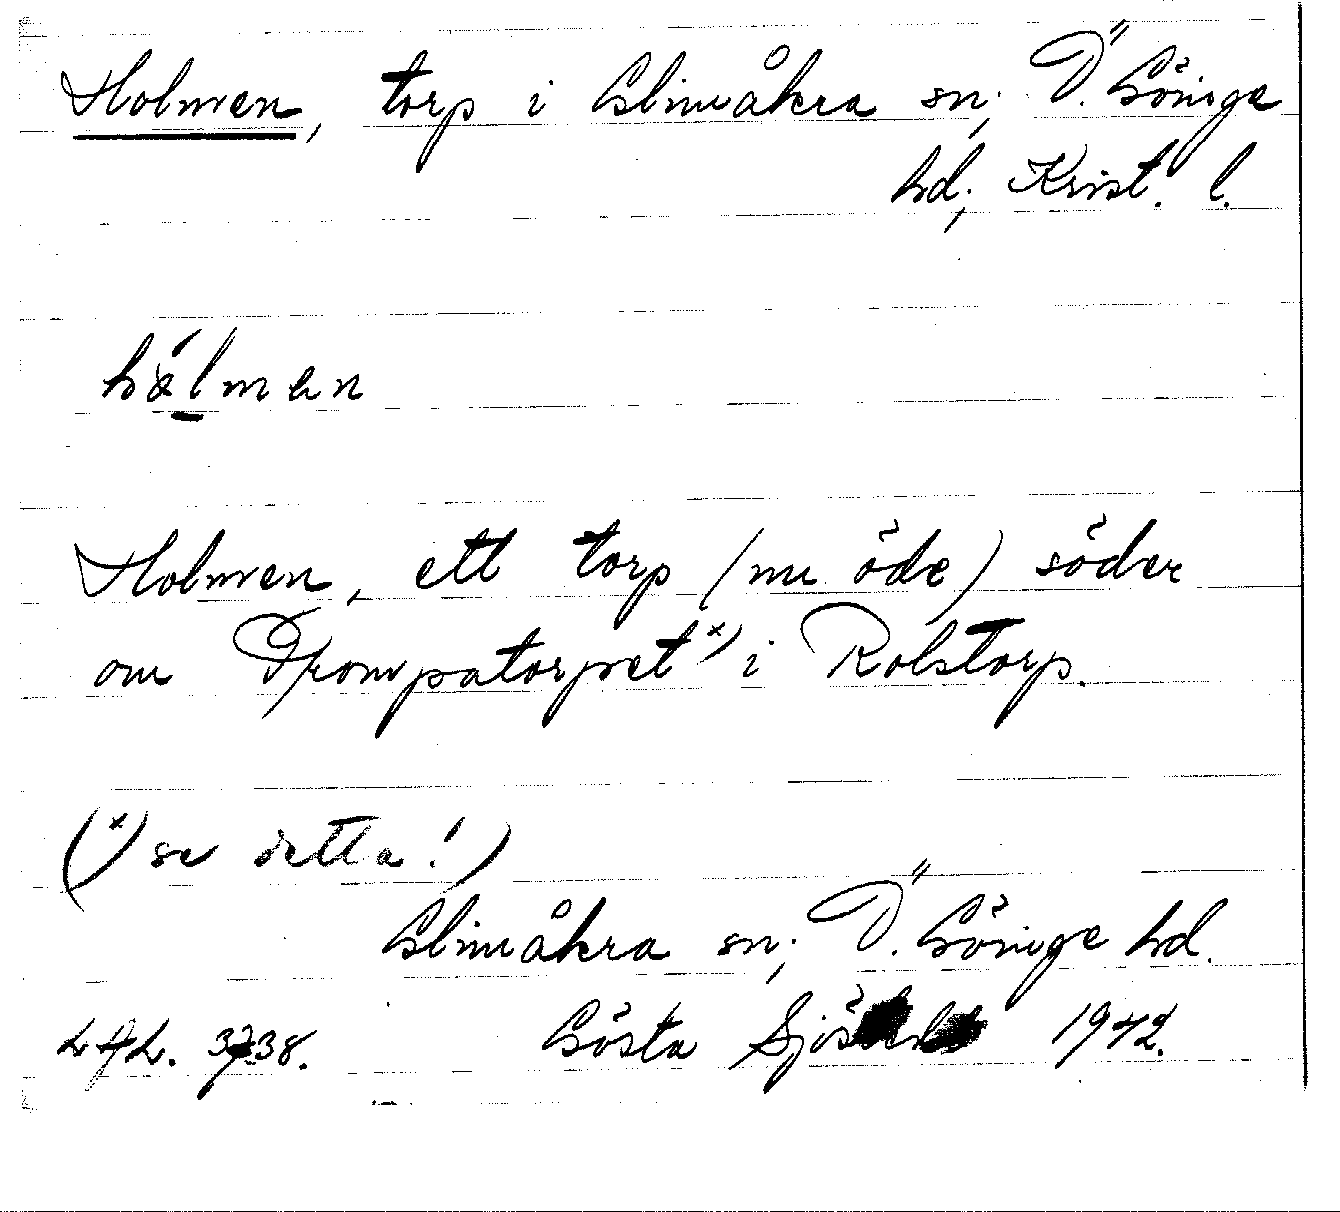 Holmen, torp i Glimåkra sn; Ö. Göinge
hd; Krist. l.
hålmen
Holmen, ett torp (nu öde) söder
om Trompatorpet x) i Rolstorp.
(x) se detta!)
Glimåkra sn; Ö. Göinge hd.
Gösta 1942.